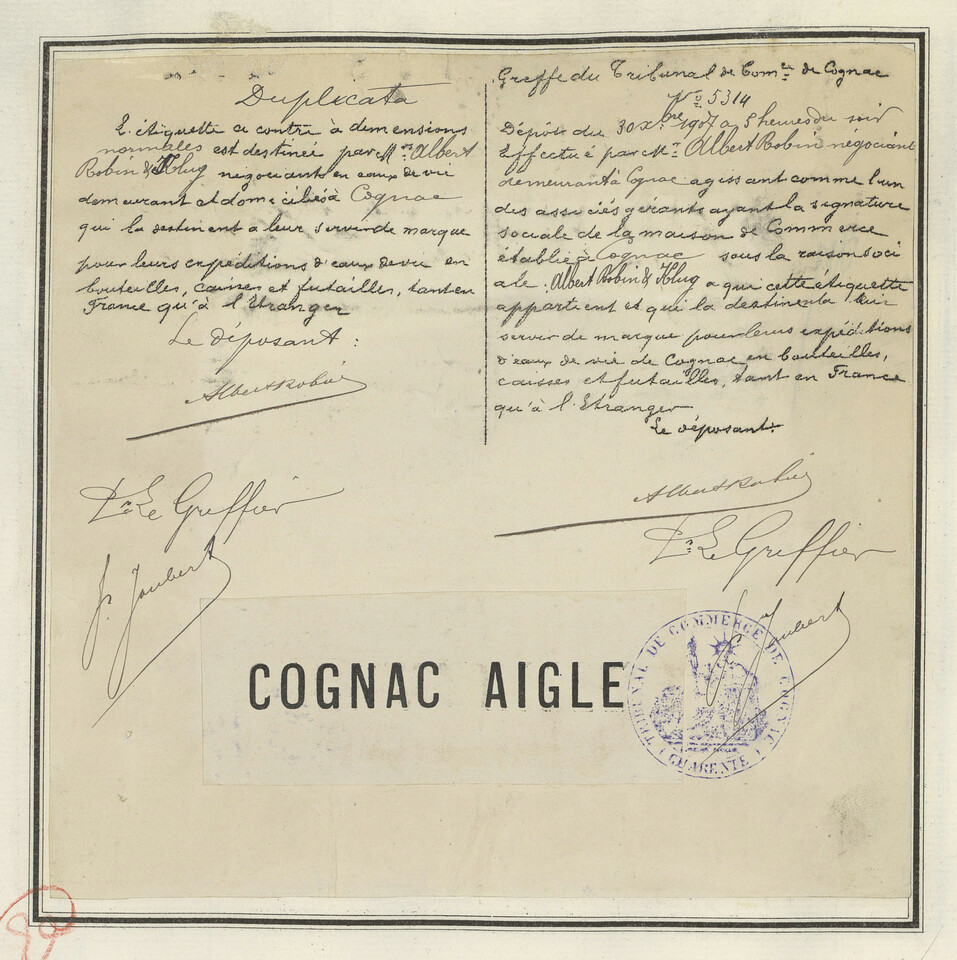 Duplicata
L'étiquette ci contre à demensions
normales est destinée par Mrs Albert
Robin & Klug négociants en eaux de vie
demeurant et domiciliés à Cognac
qui la destinent a leur servir de marque
pour leurs expéditions d'eaux de vie en
bouteilles, caisses et futailles, tant en
France qu'à l'Etranger
Le déposant :
Albert Robin
Pr Le Greffier
J. Joubert
Greffe du Tribunal de Comce de Cognac
No 5314
Dépôt du 30 Xbre 1907 à 5 heures du soir
Effectué par Mr Albert Robin négociant
demeurant à Cognac agissant comme l'un
des associés gérants ayant la signature
sociale de la maison de Commerce
établie à Cognac sous la raison soci
ale Albert Robin & Klug a qui cette étiquette
appartient et qui la destine à leur
servir de marque pour leurs expéditions
d'eaux de vie de Cognac en bouteilles,
caisses et futailles, tant en France
qu'à l'Etranger
Le déposant.
Albert Robin
Pr Le Greffier
J. Joubert
COGNAC AIGLE
TRIBUNAL DE COMMERCE DE COGNAC
(CHARENTE)
89